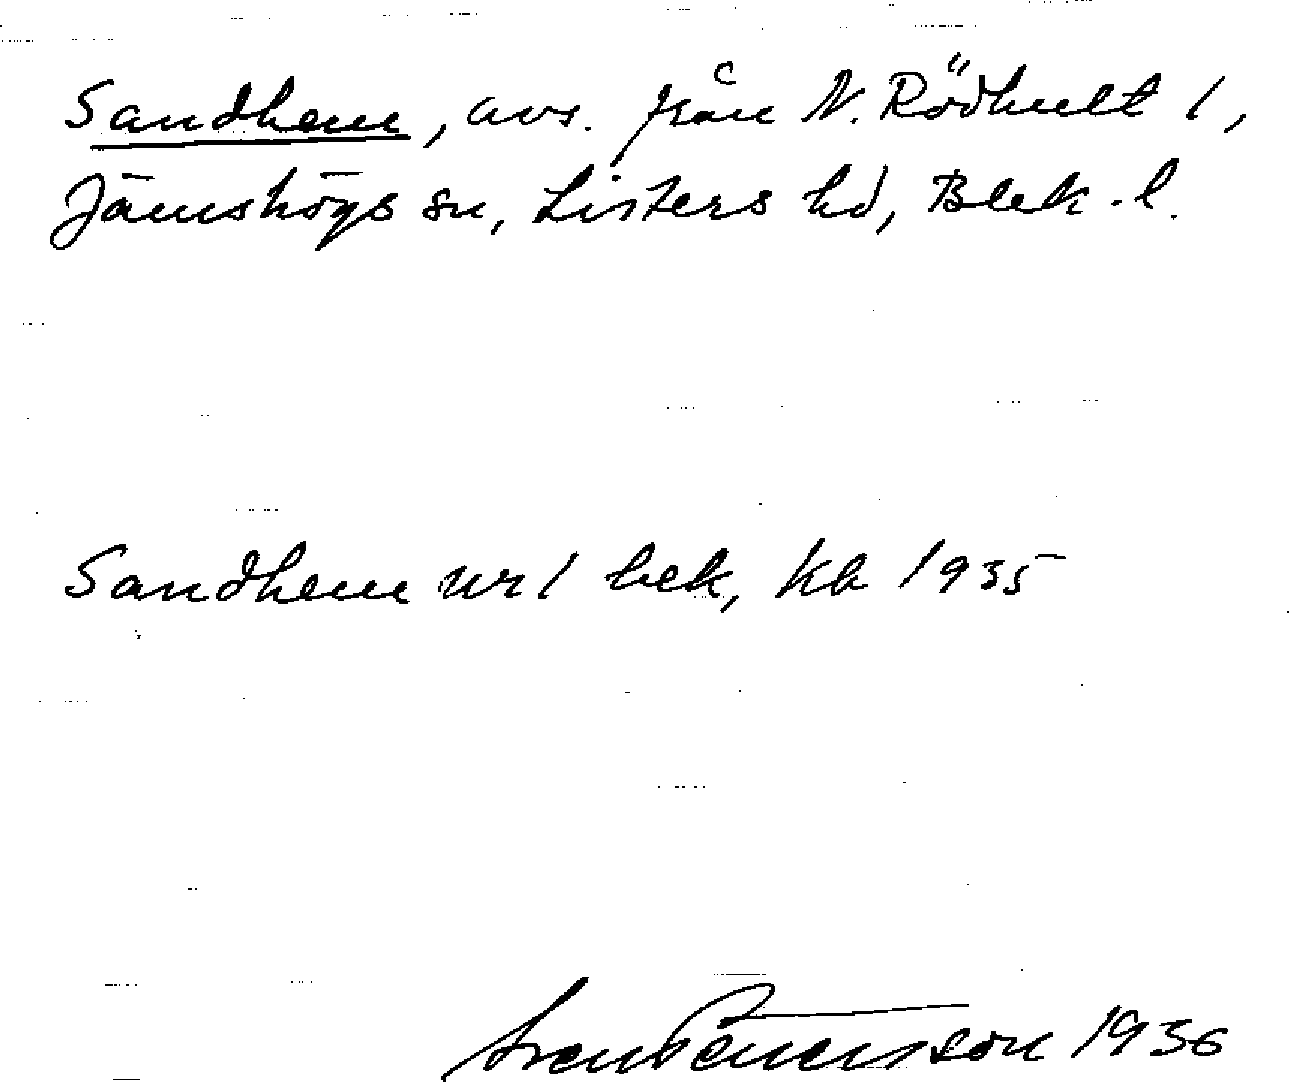 Sandhem, avs. från N. Rödhult 1,
Jämshögs sn, Listers hd, Blek. l.
Sandhem nr 1 bek, kb 1935
Sven 1936